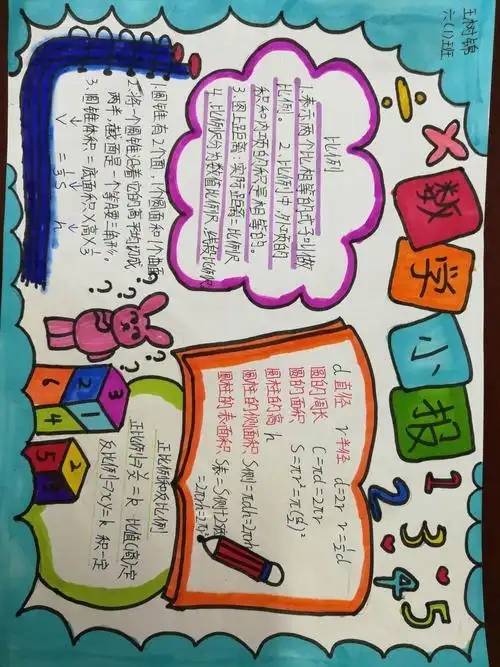 王树锦
六(1)班
数学小报
÷
×
1 3 5
2 4
比例
1.表示两个比相等的式子叫做
比例。 2.比例中,外项的
积和内项的积是相等的。
3.图上距离:实际距离=比例尺
4.比例尺分为数值比例尺、线段比例尺
1.圆锥有2个面,1个圆面和1个曲面
2.将一个圆锥沿着它的高平均切成
两半,截面是一个等腰三角形。
3.圆锥体积=底面积×高×1/3
V = 1/3 S h
d 直径 r 半径 d=2r r=1/2d
圆的周长 C=πd=2πr
圆的面积 S=πr²=π(d/2)²
圆柱的高 h
圆柱的侧面积 S侧=πdh=2πrh
圆柱的表面积 S表=S侧+2
=2πrh+2πr²
正比例和反比例
正比例→y/x=k 比值(商)一定
反比例→xy=k 积一定
? ? ? ? ?
3 2 1 6 4
2 5